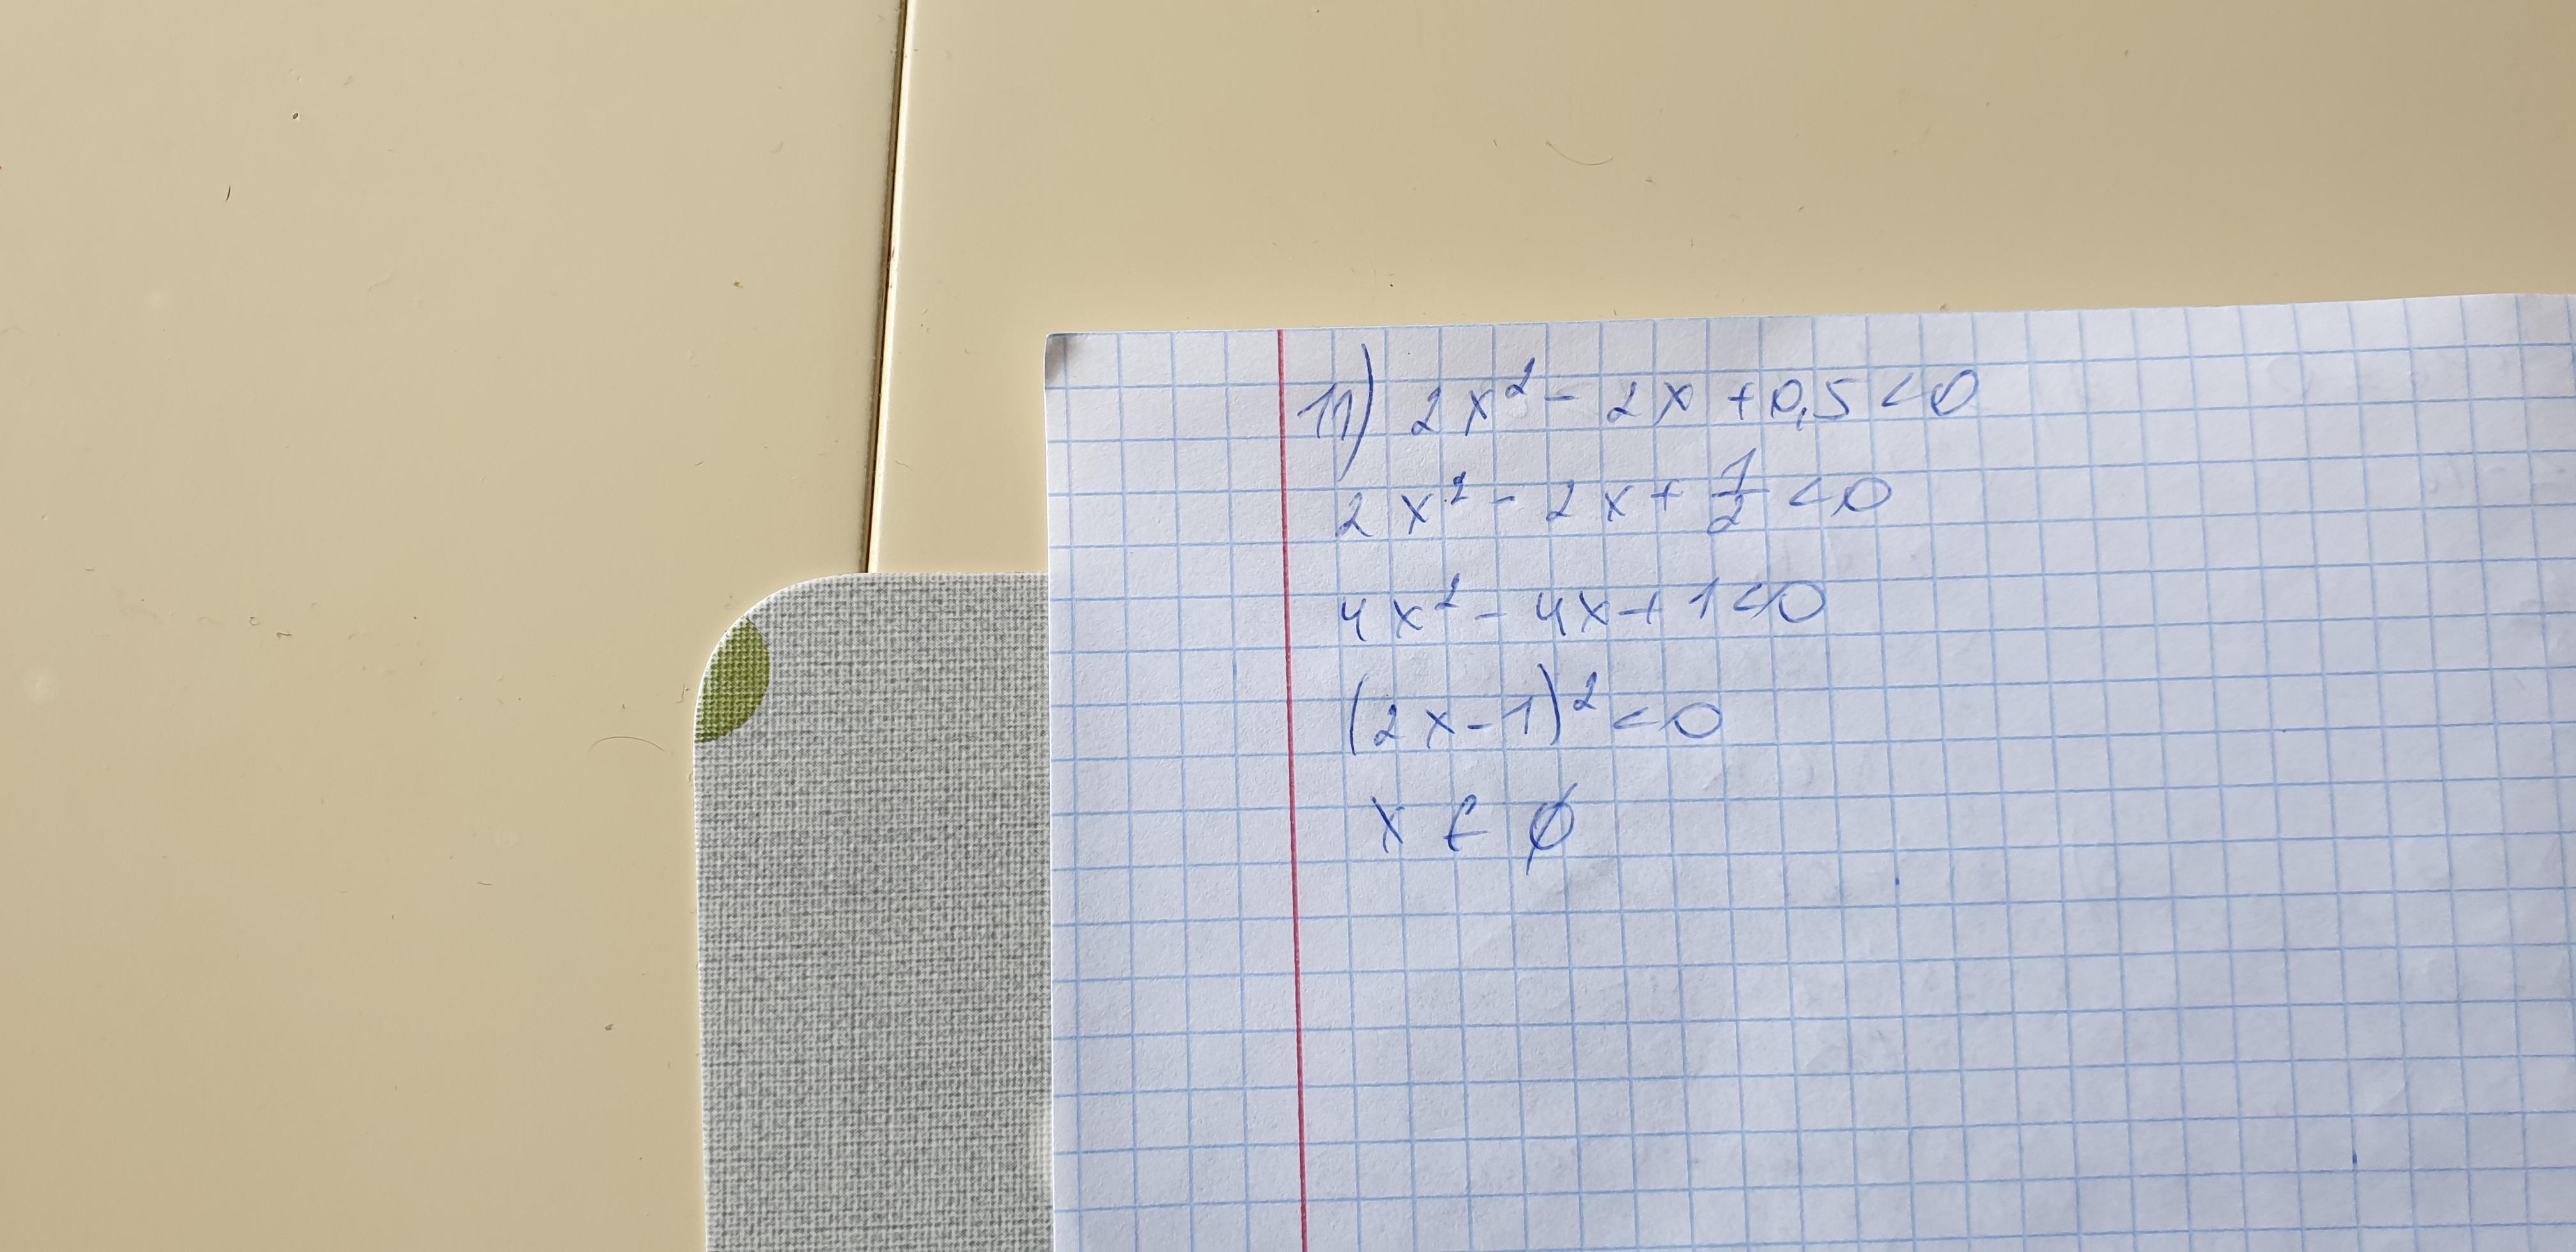 11) 2x² - 2x + 0,5 < 0
2x² - 2x + 1/2 < 0
4x² - 4x + 1 < 0
(2x - 1)² < 0
x ∈ ∅